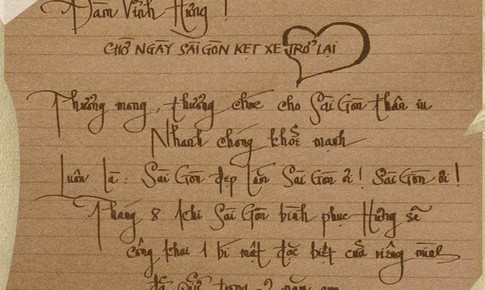 Đàm Vĩnh Hưng !
CHỜ NGÀY SÀI GÒN KẸT XE TRỞ LẠI
Thương mong, thương chúc cho Sài Gòn thân iu
Nhanh chóng khỏe mạnh
Luôn là : Sài Gòn đẹp lắm Sài Gòn ơi ! Sài Gòn ơi !
Tháng 8 khi Sài Gòn bình phục Hưng sẽ
công khai 1 bí mật đặc biết của riêng mình
đã giữ trong 2 năm